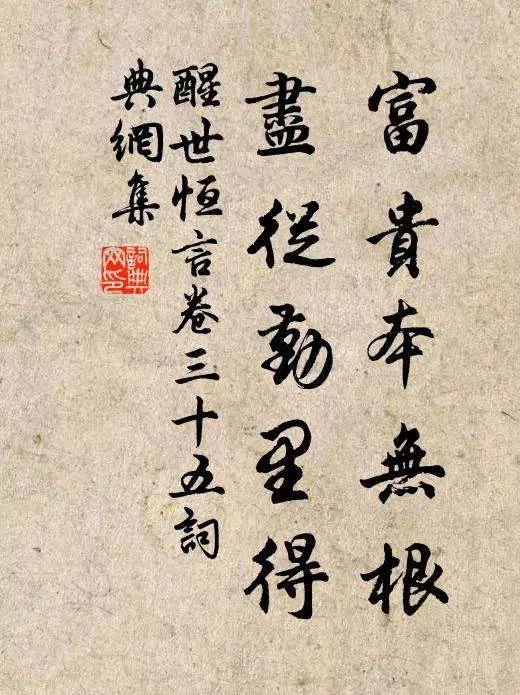 富貴本無根
盡從勤里得
醒世恒言卷三十五詞
典網集
詞典網印